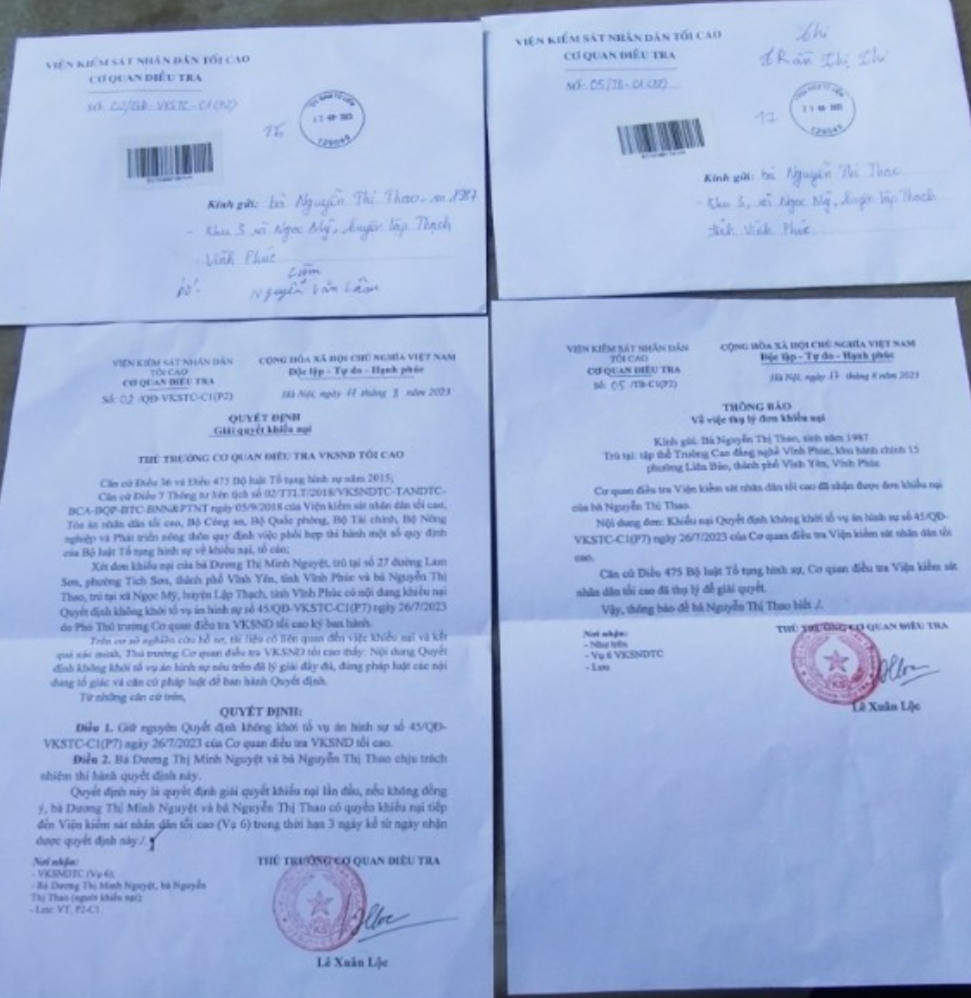 VIỆN KIỂM SÁT NHÂN DÂN TỐI CAO
CƠ QUAN ĐIỀU TRA
Số: 02/QĐ-VKSTC-C1(P2)
15
129045
Kính gửi: bà Nguyễn Thị Thao - sn 1987
- Khu 3 xã Ngọc Mỹ, huyện Lập Thạch
- Vĩnh Phúc
bố:
Nguyễn Văn
VIỆN KIỂM SÁT NHÂN DÂN TỐI CAO
CƠ QUAN ĐIỀU TRA
Số: 05/TB-C1(P2)
Trần Thị
17
129045
Kính gửi: bà Nguyễn Thị Thao
- Khu 3, xã Ngọc Mỹ, huyện Lập Thạch
tỉnh Vĩnh Phúc
VIỆN KIỂM SÁT NHÂN DÂN
TỐI CAO
CƠ QUAN ĐIỀU TRA
Số: 02 /QĐ-VKSTC-C1(P2)
CỘNG HÒA XÃ HỘI CHỦ NGHĨA VIỆT NAM
Độc lập - Tự do - Hạnh phúc
Hà Nội, ngày 11 tháng 8 năm 2023
QUYẾT ĐỊNH
Giải quyết khiếu nại
THỦ TRƯỞNG CƠ QUAN ĐIỀU TRA VKSND TỐI CAO
Căn cứ Điều 36 và Điều 475 Bộ luật Tố tụng hình sự năm 2015;
Căn cứ Điều 7 Thông tư liên tịch số 02/TTLT/2018/VKSNDTC-TANDTC-
BCA-BQP-BTC-BNN&PTNT ngày 05/9/2018 của Viện kiểm sát nhân dân tối cao,
Tòa án nhân dân tối cao, Bộ Công an, Bộ Quốc phòng, Bộ Tài chính, Bộ Nông
nghiệp và Phát triển nông thôn quy định việc phối hợp thi hành một số quy định
của Bộ luật Tố tụng hình sự về khiếu nại, tố cáo;
Xét đơn khiếu nại của bà Dương Thị Minh Nguyệt, trú tại số 27 đường Lam
Sơn, phường Tích Sơn, thành phố Vĩnh Yên, tỉnh Vĩnh Phúc và bà Nguyễn Thị
Thao, trú tại xã Ngọc Mỹ, huyện Lập Thạch, tỉnh Vĩnh Phúc có nội dung khiếu nại
Quyết định không khởi tố vụ án hình sự số 45/QĐ-VKSTC-C1(P7) ngày 26/7/2023
do Phó Thủ trưởng Cơ quan điều tra VKSND tối cao ký ban hành.
Trên cơ sở nghiên cứu hồ sơ, tài liệu có liên quan đến việc khiếu nại và kết
quả xác minh, Thủ trưởng Cơ quan điều tra VKSND tối cao thấy: Nội dung Quyết
định không khởi tố vụ án hình sự nêu trên đã lý giải đầy đủ, đúng pháp luật các nội
dung tố giác và căn cứ pháp luật để ban hành Quyết định.
Từ những căn cứ trên,
QUYẾT ĐỊNH:
Điều 1. Giữ nguyên Quyết định không khởi tố vụ án hình sự số 45/QĐ-
VKSTC-C1(P7) ngày 26/7/2023 của Cơ quan điều tra VKSND tối cao.
Điều 2. Bà Dương Thị Minh Nguyệt và bà Nguyễn Thị Thao chịu trách
nhiệm thi hành quyết định này.
Quyết định này là quyết định giải quyết khiếu nại lần đầu, nếu không đồng
ý, bà Dương Thị Minh Nguyệt và bà Nguyễn Thị Thao có quyền khiếu nại tiếp
đến Viện kiểm sát nhân dân tối cao (Vụ 6) trong thời hạn 3 ngày kể từ ngày nhận
được quyết định này./.
Nơi nhận:
- VKSNDTC (Vụ 6);
- Bà Dương Thị Minh Nguyệt, bà Nguyễn
Thị Thao (người khiếu nại);
- Lưu: VT, P2-C1.
THỦ TRƯỞNG CƠ QUAN ĐIỀU TRA
Lê Xuân Lộc
VIỆN KIỂM SÁT NHÂN DÂN
TỐI CAO
CƠ QUAN ĐIỀU TRA
Số: 05 /TB-C1(P2)
CỘNG HÒA XÃ HỘI CHỦ NGHĨA VIỆT NAM
Độc lập - Tự do - Hạnh phúc
Hà Nội, ngày 17 tháng 8 năm 2023
THÔNG BÁO
Về việc thụ lý đơn khiếu nại
Kính gửi: Bà Nguyễn Thị Thao, sinh năm 1987
Trú tại: tập thể Trường Cao đẳng nghề Vĩnh Phúc, khu hành chính 15
phường Liên Bảo, thành phố Vĩnh Yên, Vĩnh Phúc
Cơ quan điều tra Viện kiểm sát nhân dân tối cao đã nhận được đơn khiếu nại
của bà Nguyễn Thị Thao.
Nội dung đơn: Khiếu nại Quyết định không khởi tố vụ án hình sự số 45/QĐ-
VKSTC-C1(P7) ngày 26/7/2023 của Cơ quan điều tra Viện kiểm sát nhân dân tối
cao.
Căn cứ Điều 475 Bộ luật Tố tụng hình sự, Cơ quan điều tra Viện kiểm sát
nhân dân tối cao đã thụ lý để giải quyết.
Vậy, thông báo để bà Nguyễn Thị Thao biết ./.
Nơi nhận:
- Như trên
- Vụ 6 VKSNDTC
- Lưu
THỦ TRƯỞNG CƠ QUAN ĐIỀU TRA
Lê Xuân Lộc